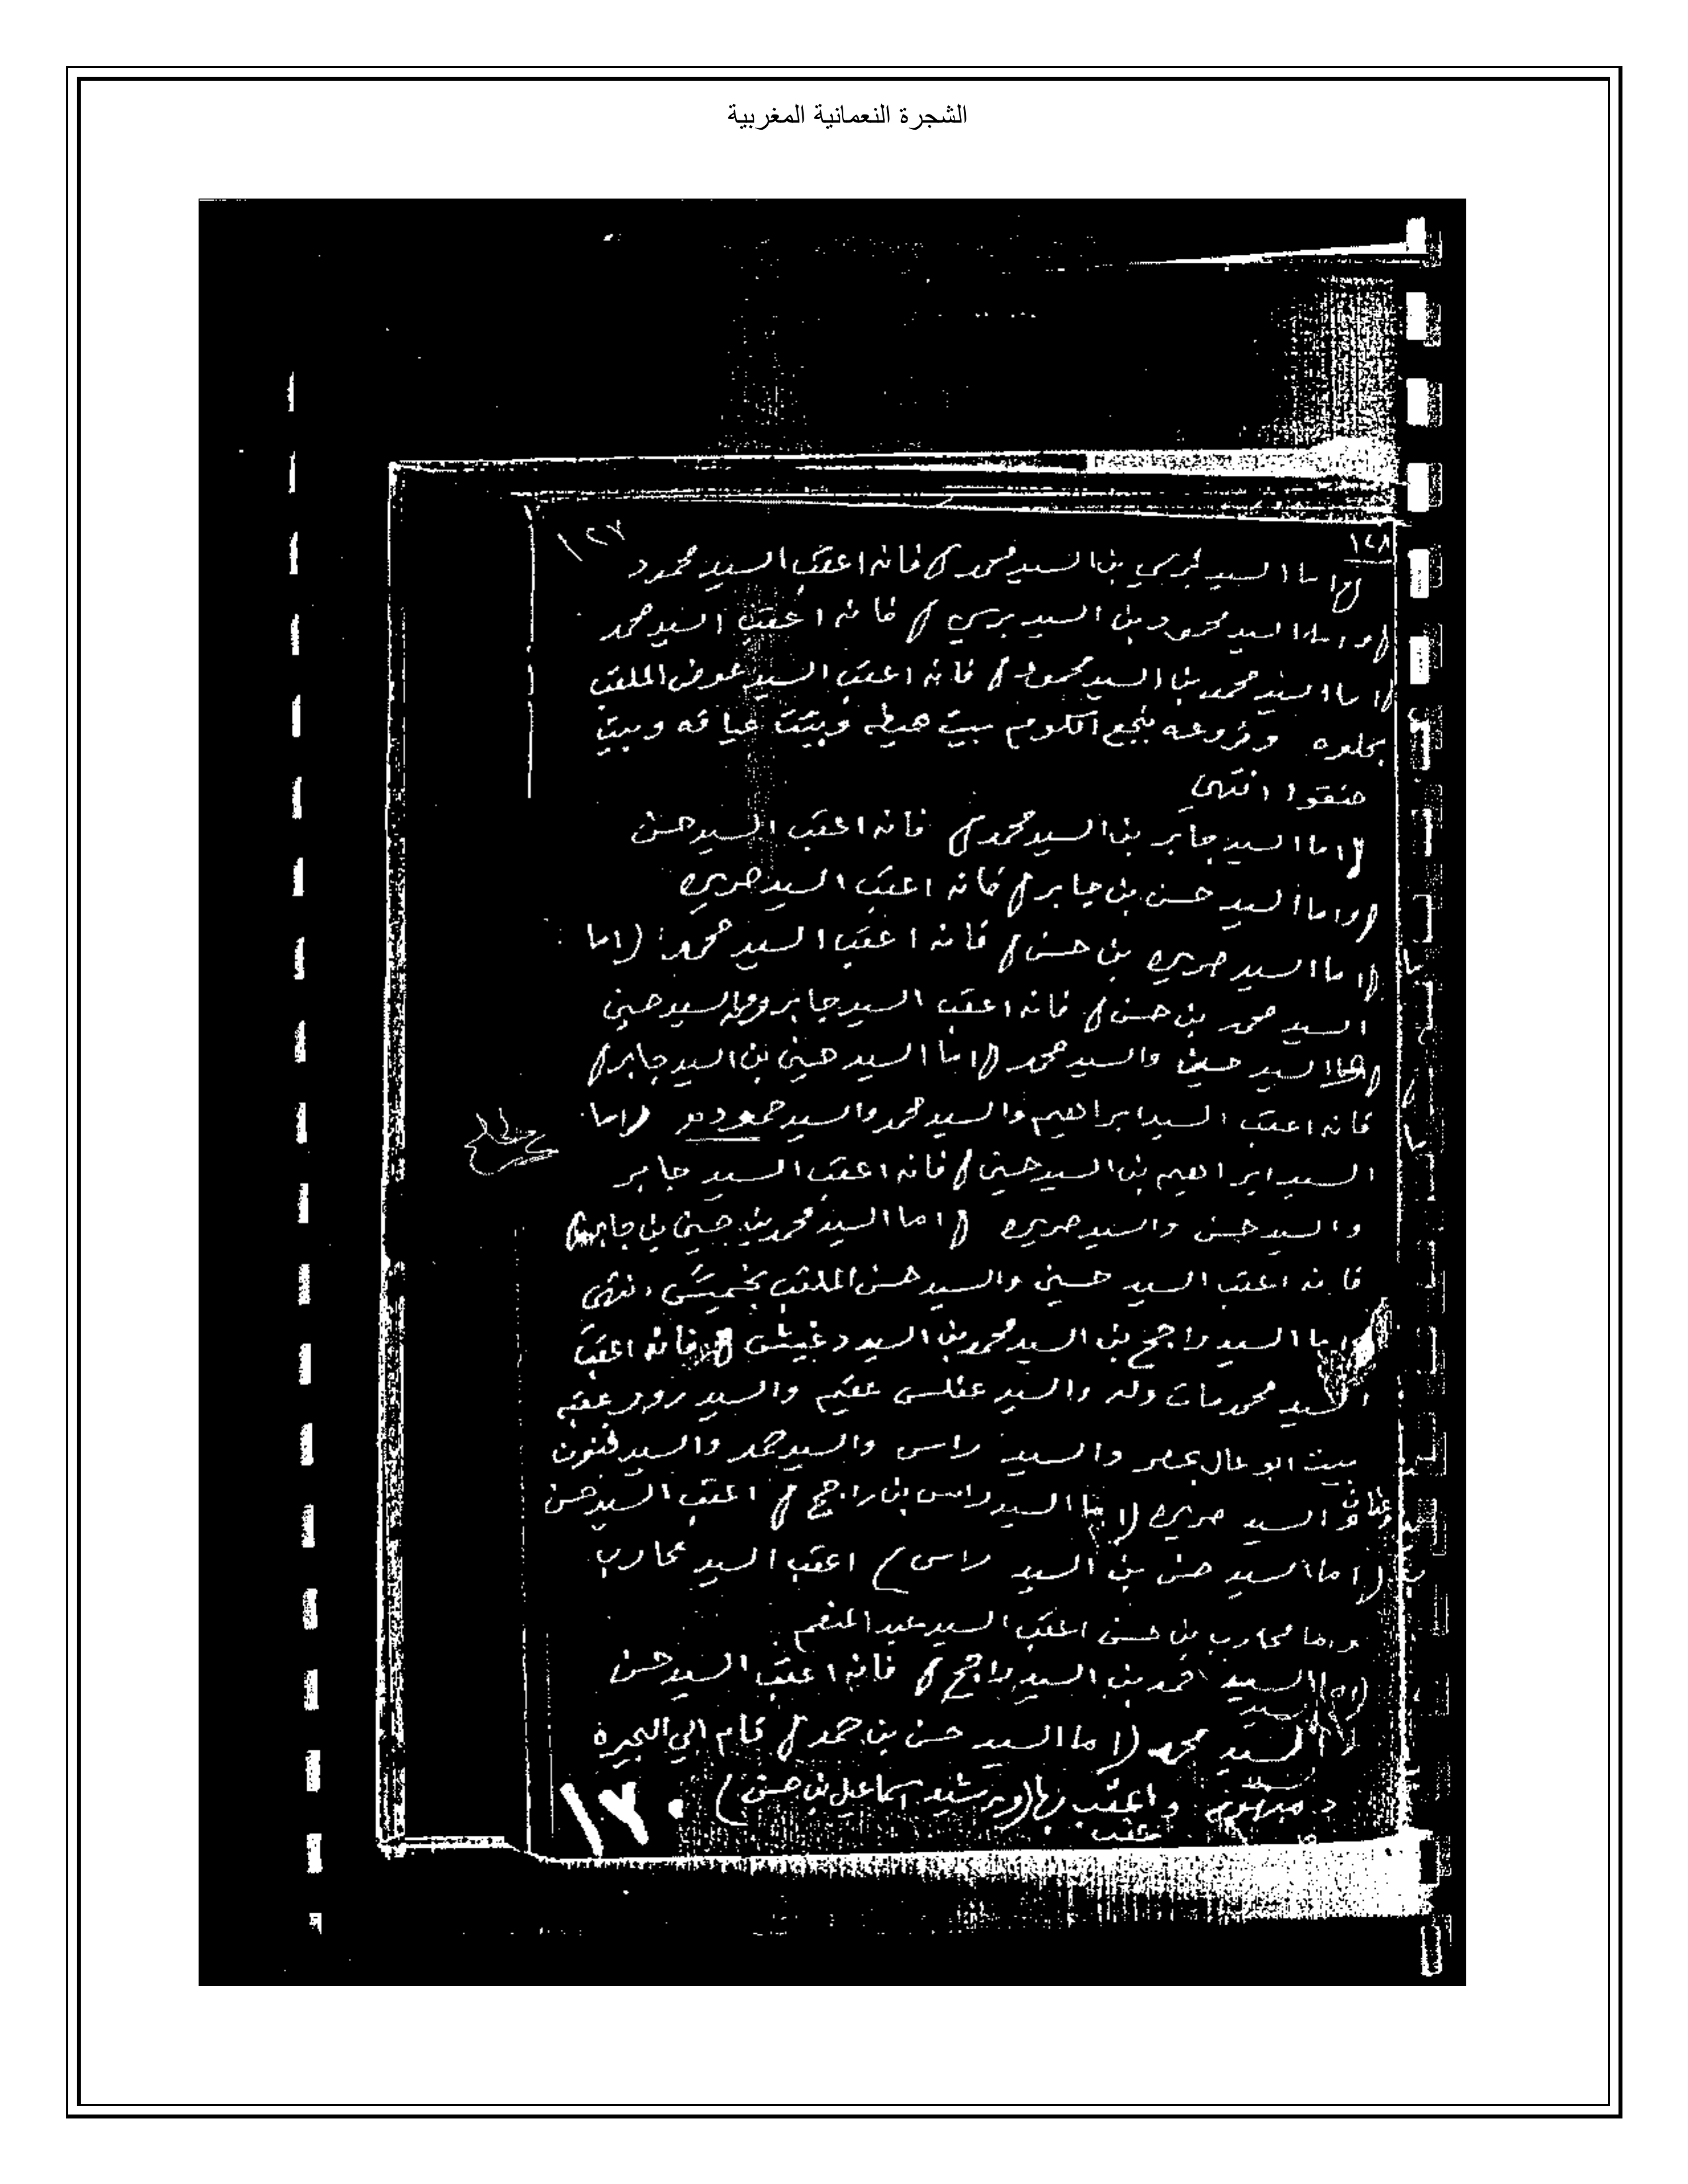 الشجرة النعمانية المغربية
١٢٨
١٢٧
(اما السيد بن السيد محمد) فانه اعقب السيد محمود
(واما السيد محمود بن السيد برسي) فانه اعقب السيد محمد
(اما السيد محمد بن السيد محمود) فانه اعقب السيد عوض الملقب
وفروعه بنجع الكلوم بيت هيطه وبيت عيافه وبيت
انتهى
(اما السيد جابر بن السيد محمد) فانه اعقب السيد حسن
(واما السيد حسن بن جابر) فانه اعقب السيد صريره
(اما السيد صريره بن حسن) فانه اعقب السيد محمد (اما
السيد محمد بن حسن) فانه اعقب السيد جابر والسيد حسين
السيد حسين والسيد محمد (اما السيد حسين بن السيد جابر)
فانه اعقب السيد ابراهيم والسيد محمد والسيد حموده (اما
السيد ابراهيم بن السيد حسين) فانه اعقب السيد جابر
والسيد حسن والسيد صريره (اما السيد محمد بن حسين بن جابر)
فانه اعقب السيد حسين والسيد حسن الملقب بخميس انتهى
واما السيد راجح بن السيد محمد بن السيد دغيش) فانه اعقب
السيد محمد مات ولد والسيد عقلس عقيم والسيد عقبه
بيت ابو عال بمصر والسيد راس والسيد حمد والسيد قنون
والسيد صريره (اما السيد راس بن راجح) اعقب السيد حسن
(اما السيد حسن بن السيد راس) اعقب السيد محارب
واما محارب بن حسن اعقب السيد عبد المنعم
(واما السيد حمد بن السيد راجح) فانه اعقب السيد حسن
السيد محمد (اما السيد حسن بن حمد) قام الي البحيره
دمنهور واعقب بها (ورشيد اسماعيل بن حسن)
عقب
١٧٠